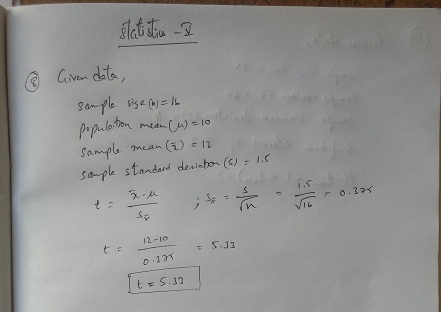 Statistics - V
⑧ Given data,
sample size (n) = 16
population mean (μ) = 10
sample mean (x̄) = 12
sample standard deviation (s) = 1.5
t = x̄-μ / S_x̄ ; S_x̄ = s / √n = 1.5 / √16 = 0.375
t = 12-10 / 0.375 = 5.33
t = 5.33